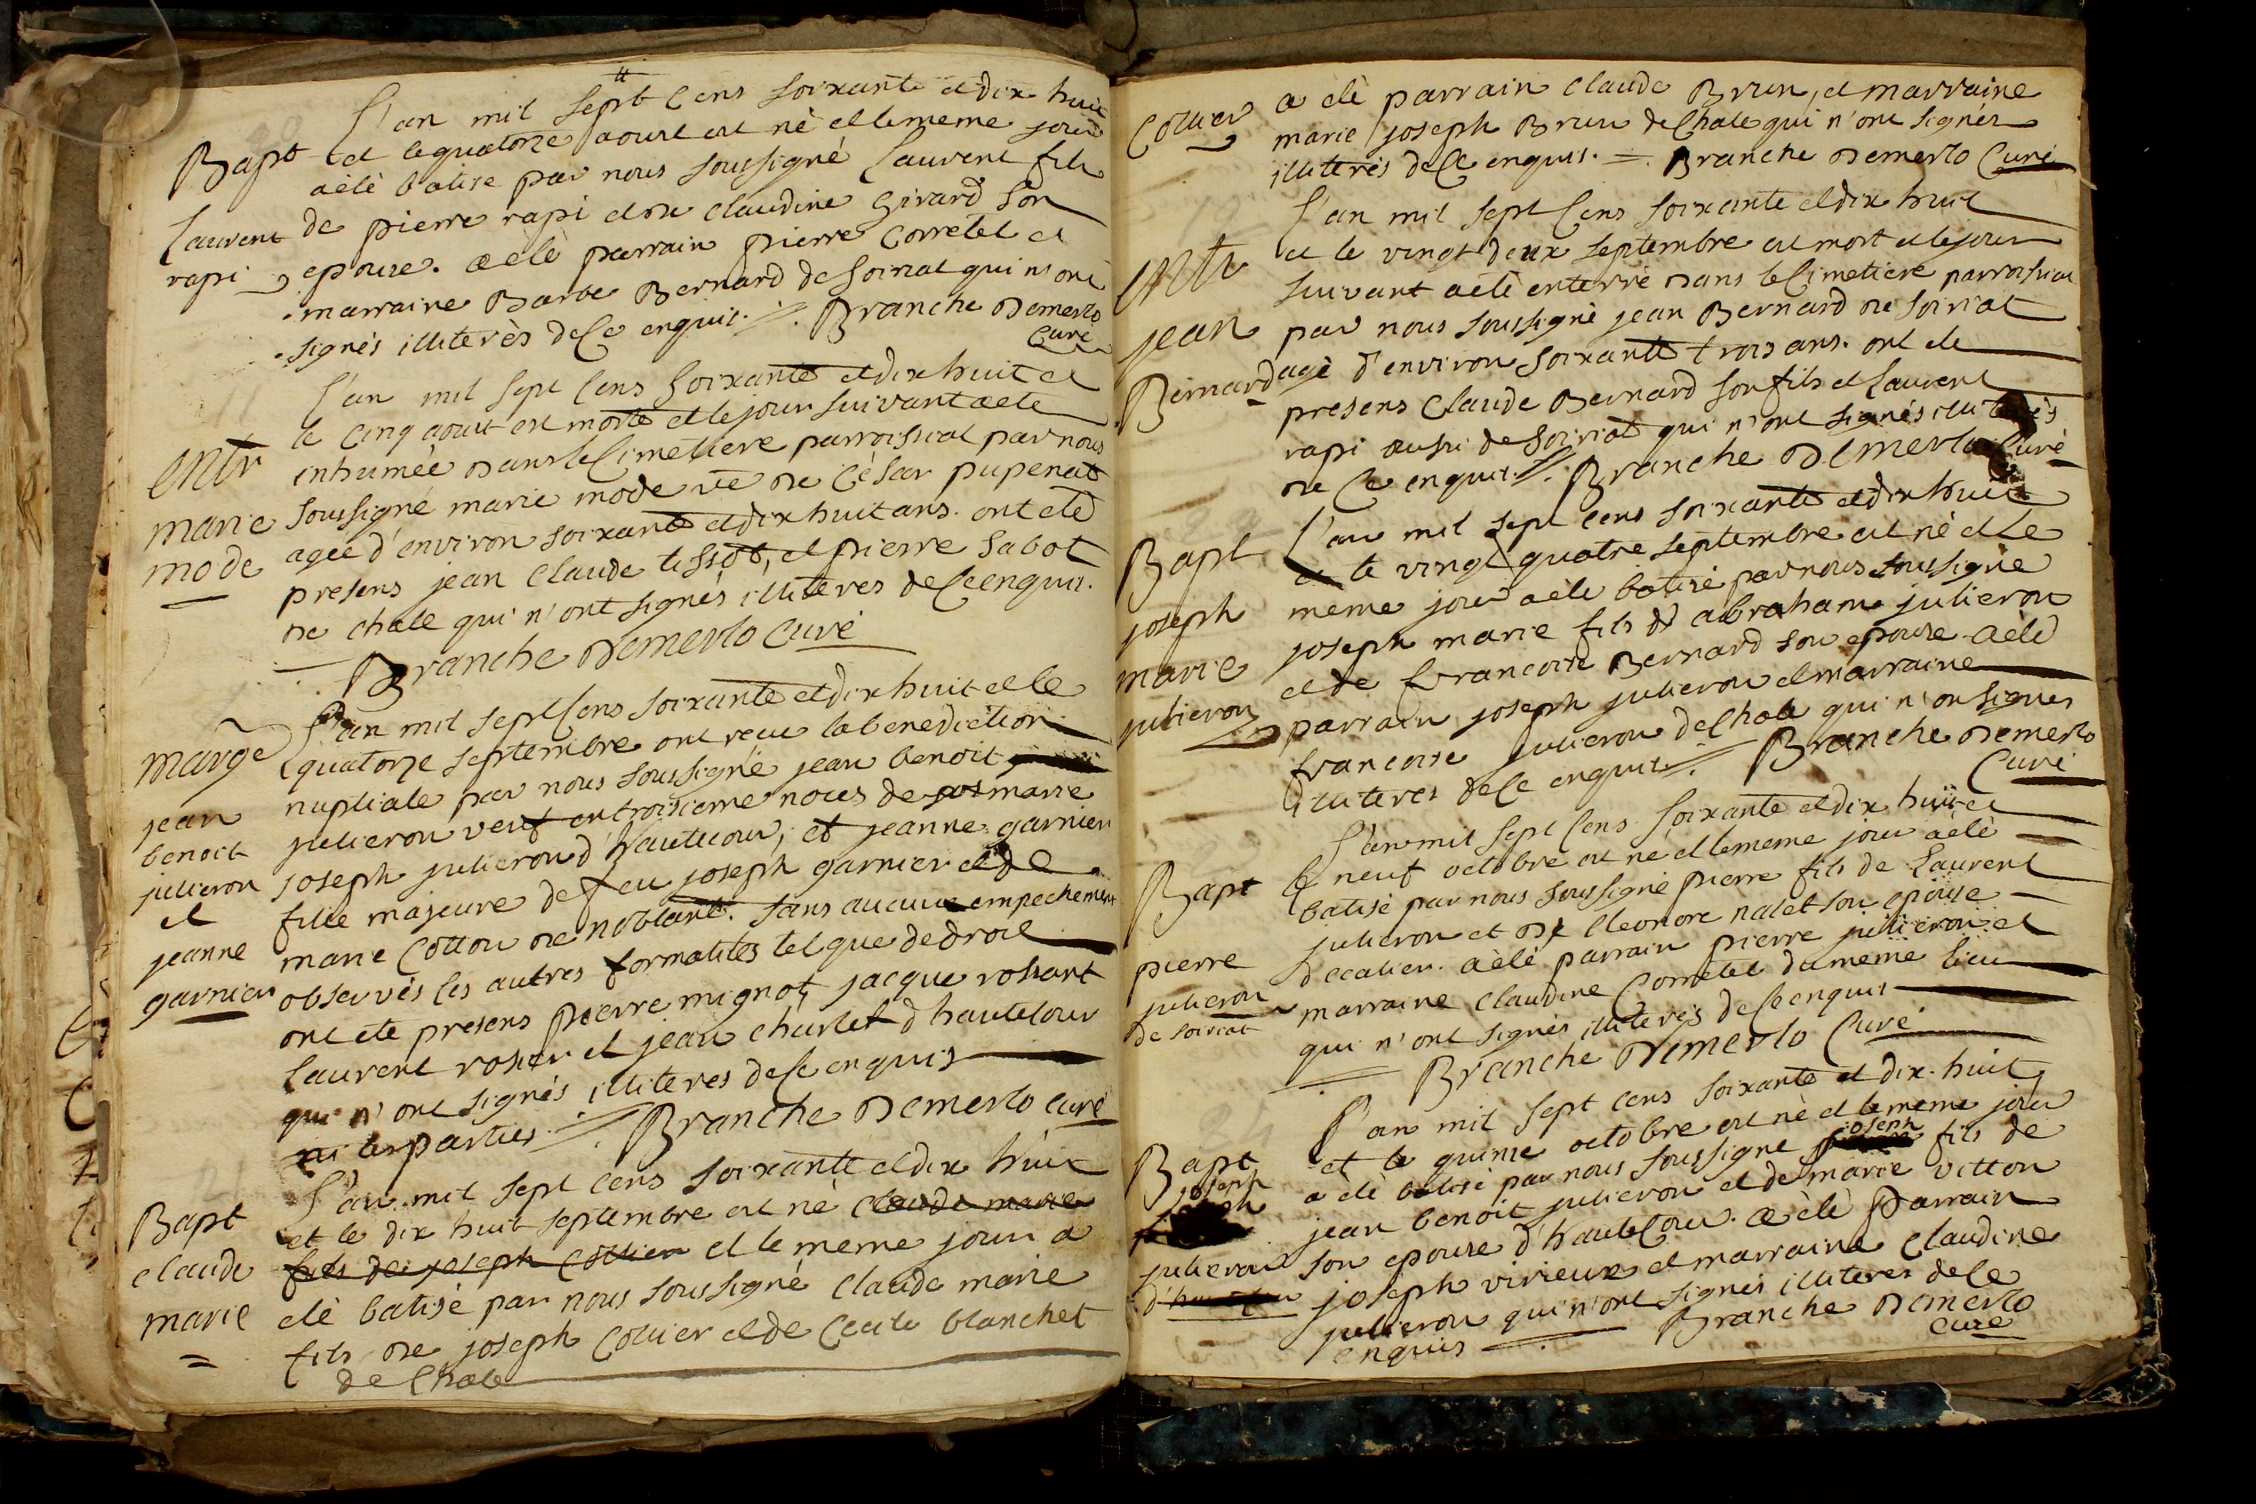 L'an mil sept cens soixante et dix huit
Bapt et le quatorze aoust est né et le meme jour
a èté batise par nous soussigné Laurent fils
Laurent de pierre rapi et de claudine Girard son
rapi epouse. a èté parrain pierre Corretet et
marraine Barbe Bernard de Soiriat qui n'ont
signés illiterès de ce enquis. Branche Demerlo
Curé
L'an mil sept cens soixante et dix huit et
le cinq aout est morte et le jour suivant a ete
entr inhumée dans le Cimetiere parroissial par nous
marie soussigné marie mode ve de Cèsar pupenat
mode agée d'environ soixante et dix huit ans. ont eté
presens jean claude tissot, et pierre sabot
de chale qui n'ont signés illiteres de ce enquis.
Branche Demerlo Curé
L'an mil sept cens soixante et dix huit et le
marge quatorze septembre ont recu la benediction
nuptiale par nous soussigné jean benoit
jean julieron veuf en troisieme noces de marie
benoit joseph julieron d'hautecour, et jeanne garnier
julieron fille majeure de feu joseph garnier et de
et marie Cotton de noblant. sans aucun empechement
jeanne observés les autres formalités tel que de droit
garnier ont eté presens pierre mignot, jacque rossant
laurent rosier et jean charlet d'hautecour
qui n'ont signés illiteres de ce enquis
ni les parties. Branche Demerlo curé
L'an mil sept cens soixante et dix huit
Bapt et le dix huit septembre est né claude marie
claude fils de joseph Collier et le meme jour a
marie eté batisé par nous soussigné claude marie
fils de joseph Collier et de Cecile blanchet
de Chale
Collier a eté parrain claude Brun, et marraine
marie joseph Brun de Chale qui n'ont signés
illiterés de ce enquis. Branche Demerlo Curé
L'an mil sept cens soixante et dix huit
et le vingt deux septembre est mort et le jour
entr suivant a èté enterré dans le Cimetiere parroissial
jean par nous soussigné jean Bernard de Soiriat
Bernard agé d'environ soixante trois ans. ont ete
presens Claude Bernard son fils et Laurent
rapi aussi de Soiriat qui n'ont signés illiterés
de ce enquis. Branche Demerlo Curé
L'an mil sept cens soixante et dix huit
Bapt et le vingt quatre septembre est né et le
meme jour a èté batisé par nous soussigné
joseph joseph marie fils de abraham julieron
marie et de francoise Bernard son epouse a èté
julieron parrain joseph julieron et marraine
francoise julieron de Chale qui n'on signés
illiteres de ce enquis. Branche Demerlo
Curé
L'an mil sept cens soixante et dix huit et
le neuf octobre est né et le meme jour a èté
Bapt batisé par nous soussigné pierre fils de Laurent
julieron et de Eleonore nalet son epouse
pierre a èté parrain pierre julieron et
julieron marraine claudine Corretet du meme lieu
de soiriat qui n'ont signés illiterés de ce enquis
Branche Demerlo Curé
L'an mil sept cens soixante et dix huit
et le quinze octobre est nè et le meme jour
Bapt a èté batisé par nous soussigne joseph fils de
joseph jean benoit julieron et de marie vitton
son epouse d'hauteCour. a èté Parrain
julieron joseph virieux et marraine claudine
julieron qui n'ont signés illiteres de ce
enquis Branche Demerlo
curé